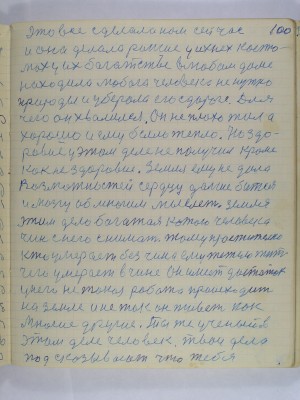 Это все сделала ном сейчас 100
и она делала раньше у их их костю
мах у их багатстве в любом доме
находила любога человека не нужно
природы и уберала его с дороге. Для
чего он хвалился. Он неплохо жил а
хорошо и ему было тепло. Но здо
ровие у этом деле не получил кроме
как не здоровие. Земля ему не дала
возможностей сердцу дальше биться
и мозгу об многим мыслеть. земля
этим дело багатая котого человека
чин с него снимать. тому простительно
кто умерает без чина ему тяжело тит
чего умерает в чине Он имет достаток
у него не токоя робота происходит
на земле и не так он живет как
многие другие. Ты же ученый в
этом деле человек, твои дела
подсказывают что тебя